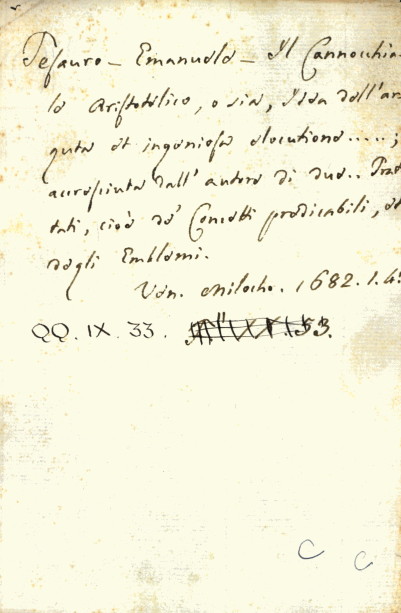 Tesauro - Emanuele - Il Cannocchia-
le Aristotelico, o sia, Idea dell'ar-
guta et ingeniosa elocutione.....;
accresciuta dall' autore di due.. Trat
tati, cioè de' Concetti predicabili, et
degli Emblemi.
Ven. Milocho. 1682. 1. 4°
QQ. IX. 33. 53.
C C